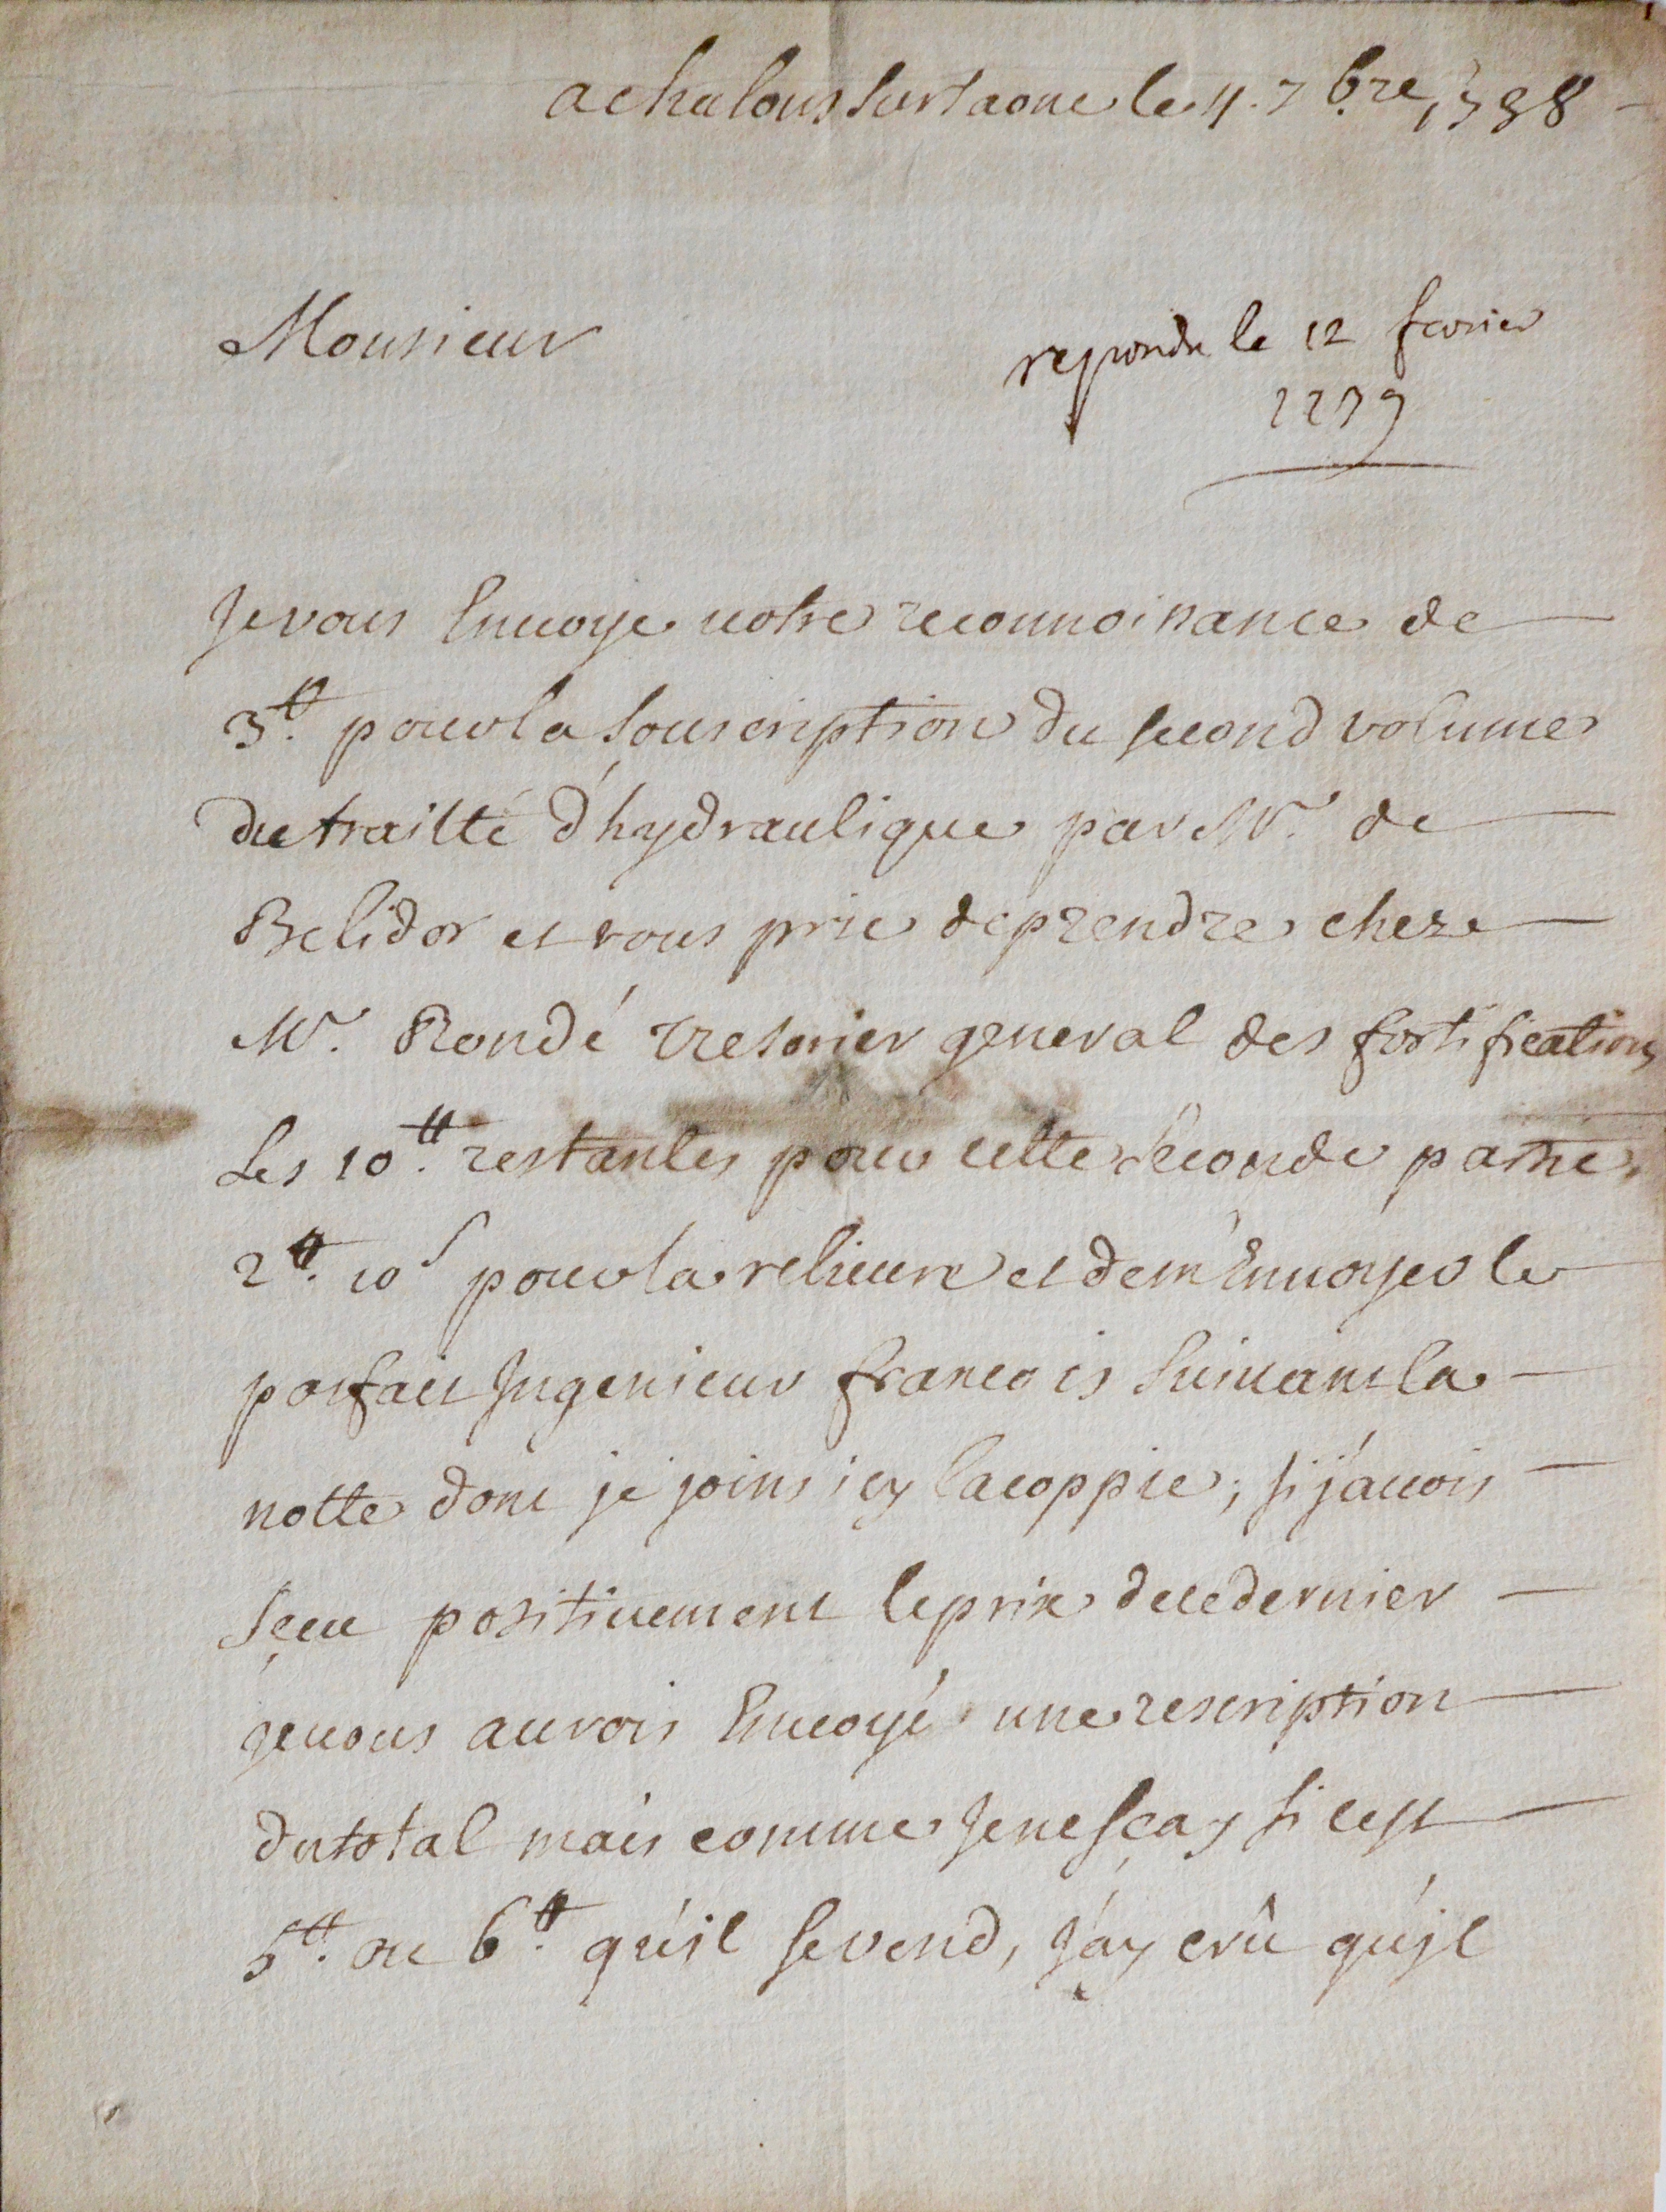 a chalons sur saone le 4. 7bre, 1738
Monsieur
repondu le 12 fevrier
1739
Je vous Envoye votre reconnoissance de
3tt. pour la souscription du second volume
du traitté d'hydraulique par Mr. de
Belidor et vous prie de prendre cheze
Mr. Rondé tresorier general des fortifications
Les 10tt. restantes pour cette seconde partie,
2tt. 10s pour la relieure et de m'Envoyer le
parfait Ingenieur francois suivant la
notte dont je joins icy la coppie; si j'avois
sçeu positivement le prix de ce dernier
je vous aurois Envoyé une rescription
du total mais comme Je ne sçay si cest
5tt. ou 6tt. qu'il se vend, J'ay crû qu'jl